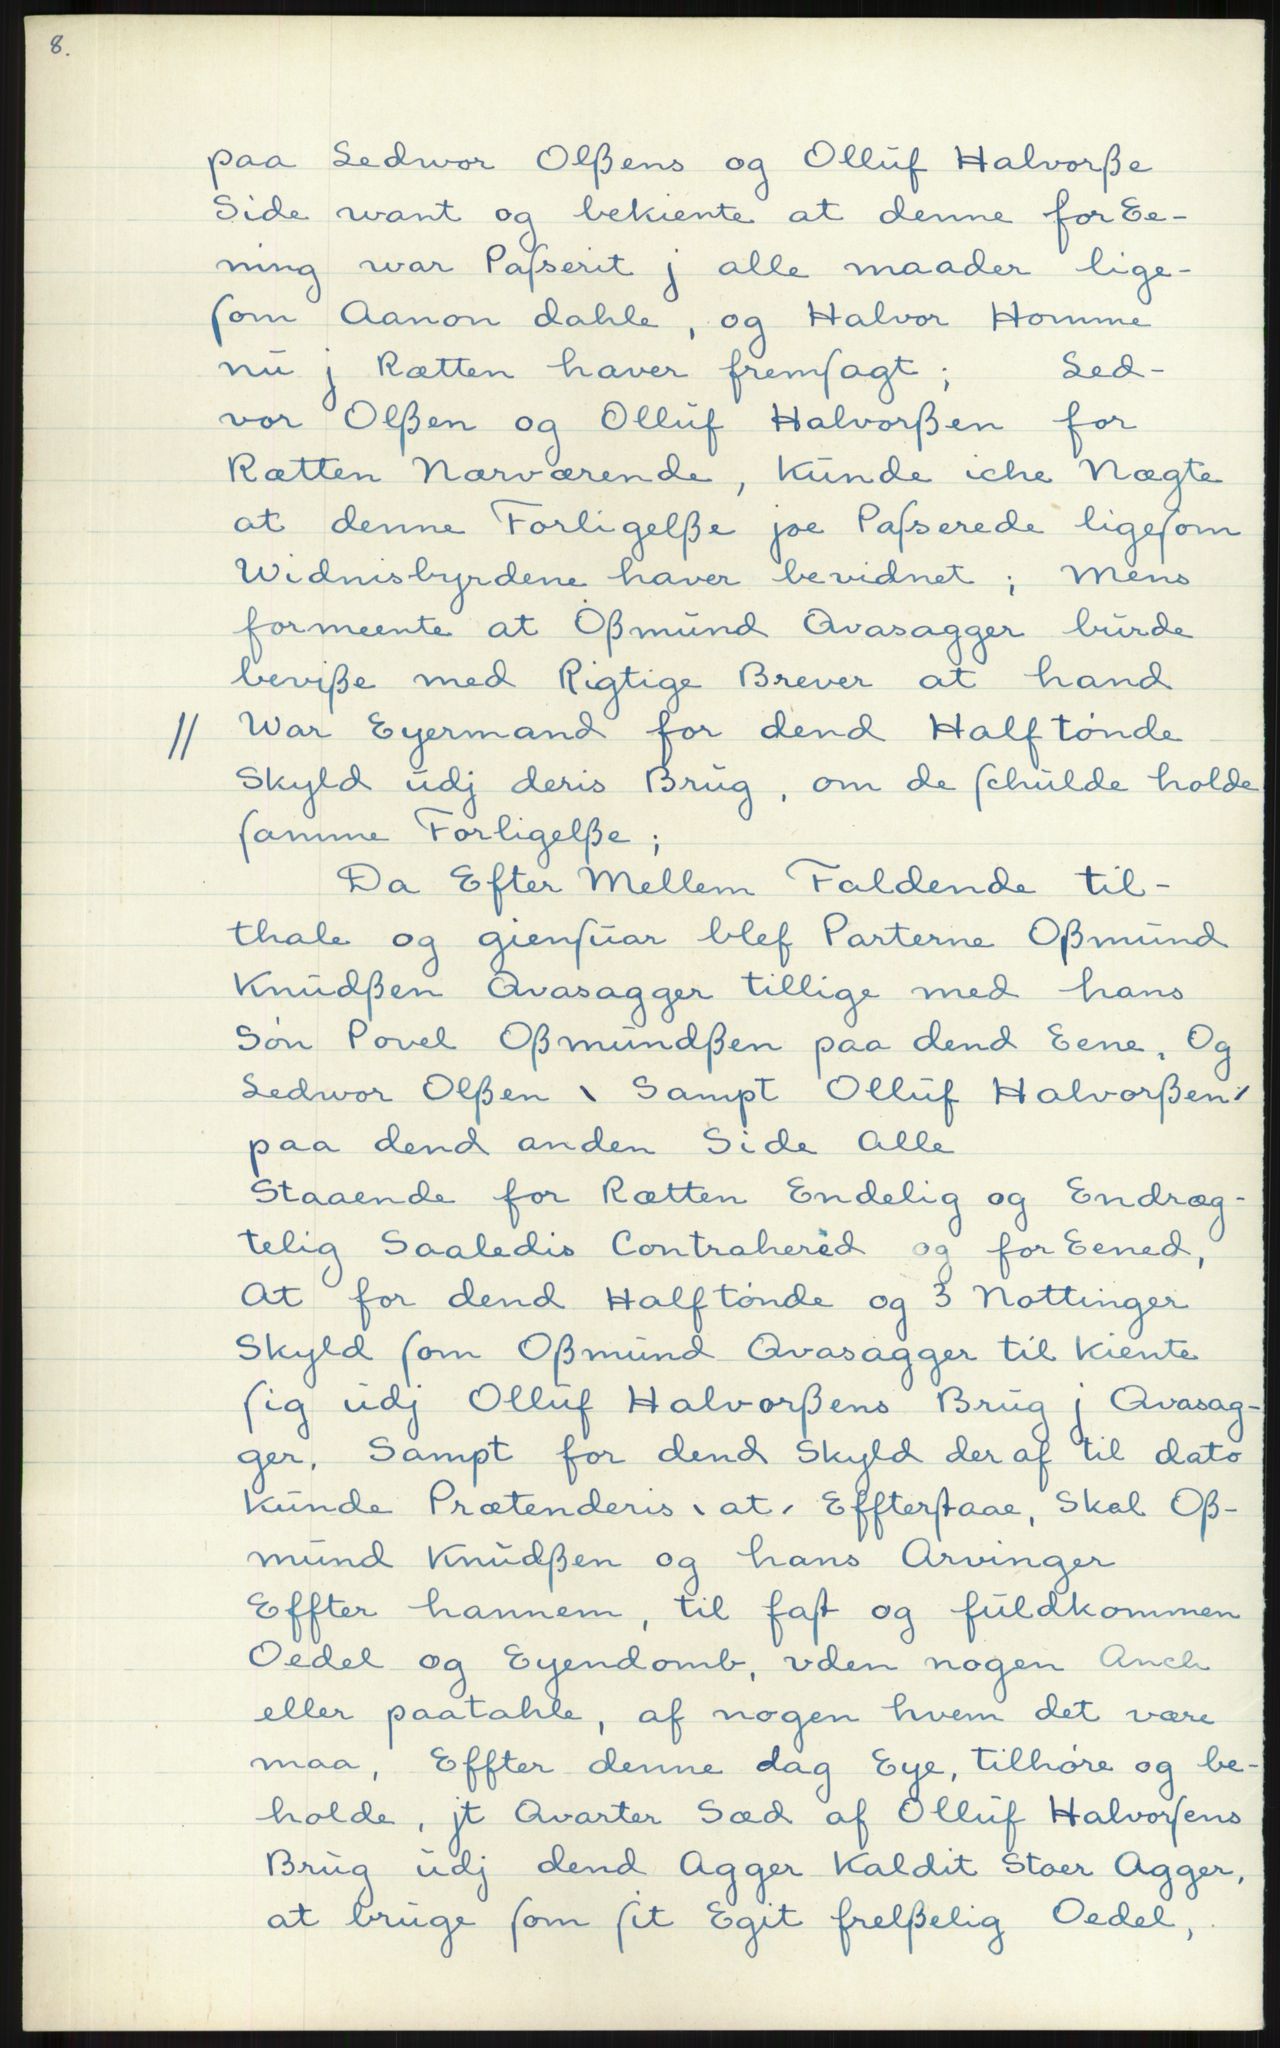 8.
paa Sedwor Olßens og Olluf Halvorße
Side want og bekiente at denne forEe-
ning war Paſserit j alle maader lige-
ſom Aanon dahle, og Halvor Homme
nu j Rætten haver fremſagt; Sed-
vor Olßen og Olluf Halvorßen for
Rætten Nærværende, Kunde iche Nægte
at denne Forligelße joe Paſserede ligeſom
Widnisbyrdene haver bevidnet; Mens
formeente at Oßmund Qvasagger burde
beviße med Rigtige Brever at hand
// War Eyermand for dend Halftønde
Skyld udj deris Brug, om de ſchulde holde
ſamme Forligelße;
Da Efter Mellem Faldende til-
thale og gienſuar blef Parterne Oßmund
Knudßen Qvasagger tillige med hans
Søn Povel Oßmundßen paa dend Eene, Og
Sedwor Olßen \ Sampt Olluf Halvorßen /
paa dend anden Side Alle
Staaende for Rætten Endelig og Endræg-
telig Saaledis Contraheréd og forEened,
At for dend Halftønde og 3 Nottinger
Skyld ſom Oßmund Qvasagger til kiente
ſig udj Olluf Halvorßens Brug j Qvasag-
ger, Sampt for dend Skyld der af til dato
Kunde Prætenderis \ at / Effterſtaae, Skal Oß-
mund Knudßen og hans Arvinger
Effter hannem, til faſt og fuldkommen
Oedel og Eyendomb, vden nogen Anch
eller paatahle, af nogen hvem det være
maa, Effter denne dag Eye, tilhøre og be-
holde, jt Qvarter Sæd af Olluf Halvorſens
Brug udj dend Agger Kaldit Stoer Agger,
at bruge ſom ſit Egit frelßelig Oedel,